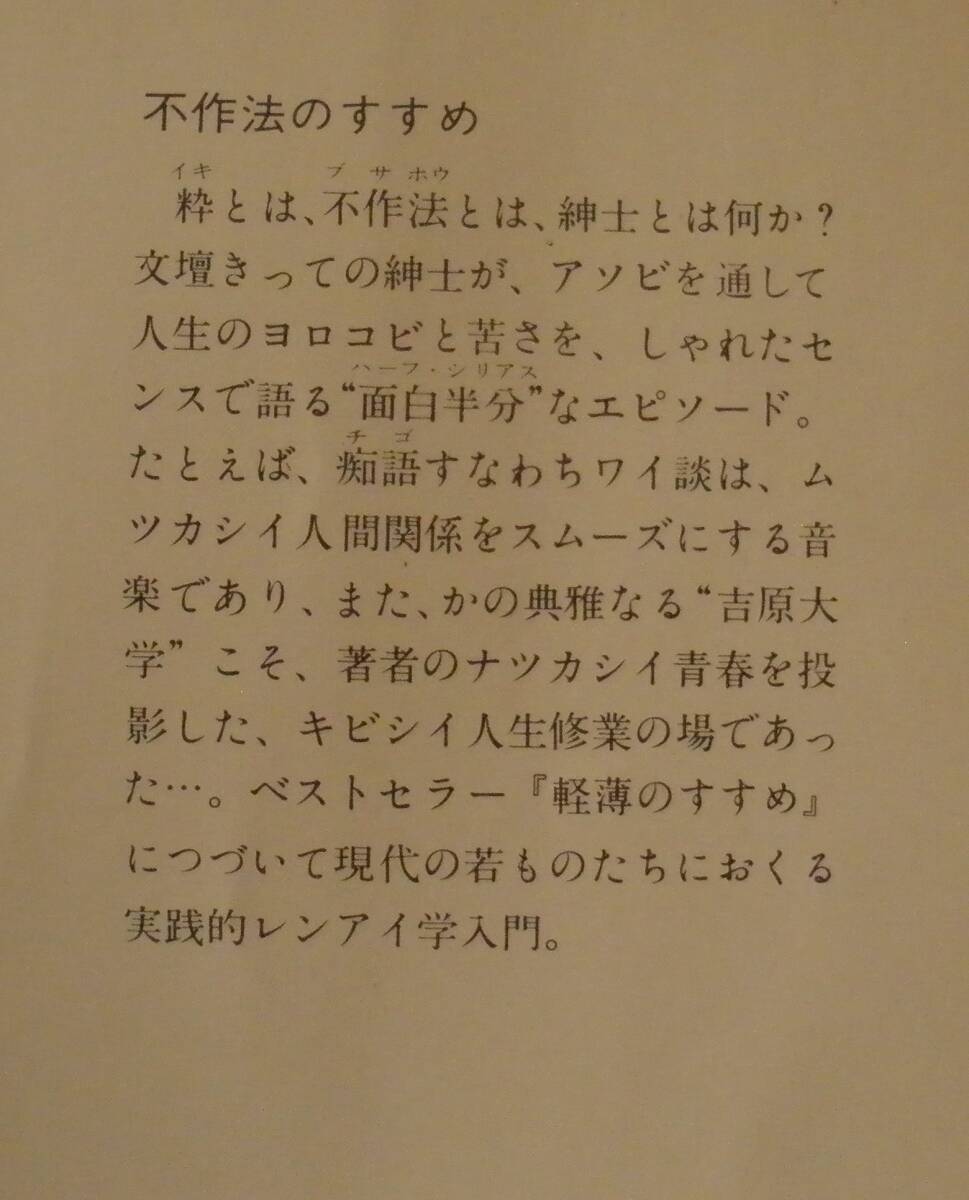 不作法のすすめ
イキ ブ サ ホウ
粋とは、不作法とは、紳士とは何か？
文壇きっての紳士が、アソビを通して
人生のヨロコビと苦さを、しゃれたセ
ハーフ・シリアス
ンスで語る“面白半分”なエピソード。
チ ゴ
たとえば、痴語すなわちワイ談は、ム
ツカシイ人間関係をスムーズにする音
楽であり、また、かの典雅なる“吉原大
学” こそ、著者のナツカシイ青春を投
影した、キビシイ人生修業の場であっ
た…。ベストセラー『軽薄のすすめ』
につづいて現代の若ものたちにおくる
実践的レンアイ学入門。